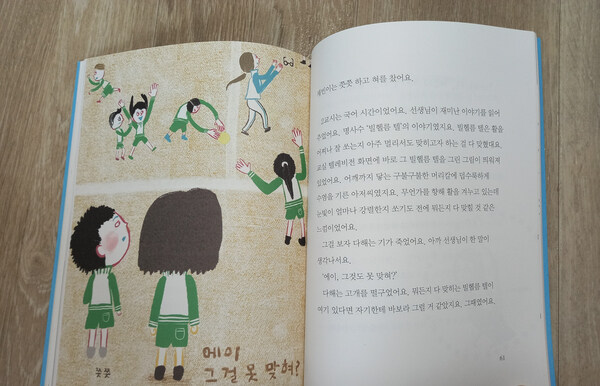 쯧쯧
에이
그걸 못 맞혀?
쯧쯧 하고 혀를 찼어요.
교시는 국어 시간이었어요. 선생님이 재미난 이야기를 읽어
주었어요. 명사수 '빌헬름 텔'의 이야기였지요. 빌헬름 텔은 활을
어찌나 잘 쏘는지 아주 멀리서도 맞히고자 하는 걸 다 맞혔대요.
교실 텔레비전 화면에 바로 그 빌헬름 텔을 그린 그림이 띄워져
있었어요. 어깨까지 닿는 구불구불한 머리칼에 덥수룩하게
수염을 기른 아저씨였지요. 무언가를 향해 활을 겨누고 있는데
눈빛이 얼마나 강렬한지 쏘기도 전에 뭐든지 다 맞힐 것 같은
느낌이었어요.
그걸 보자 다해는 기가 죽었어요. 아까 선생님이 한 말이
생각나서요.
'에이, 그것도 못 맞혀?'
다해는 고개를 떨구었어요. 뭐든지 다 맞히는 빌헬름 텔이
여기 있다면 자기한테 바보라 그럴 거 같았지요. 그때였어요.